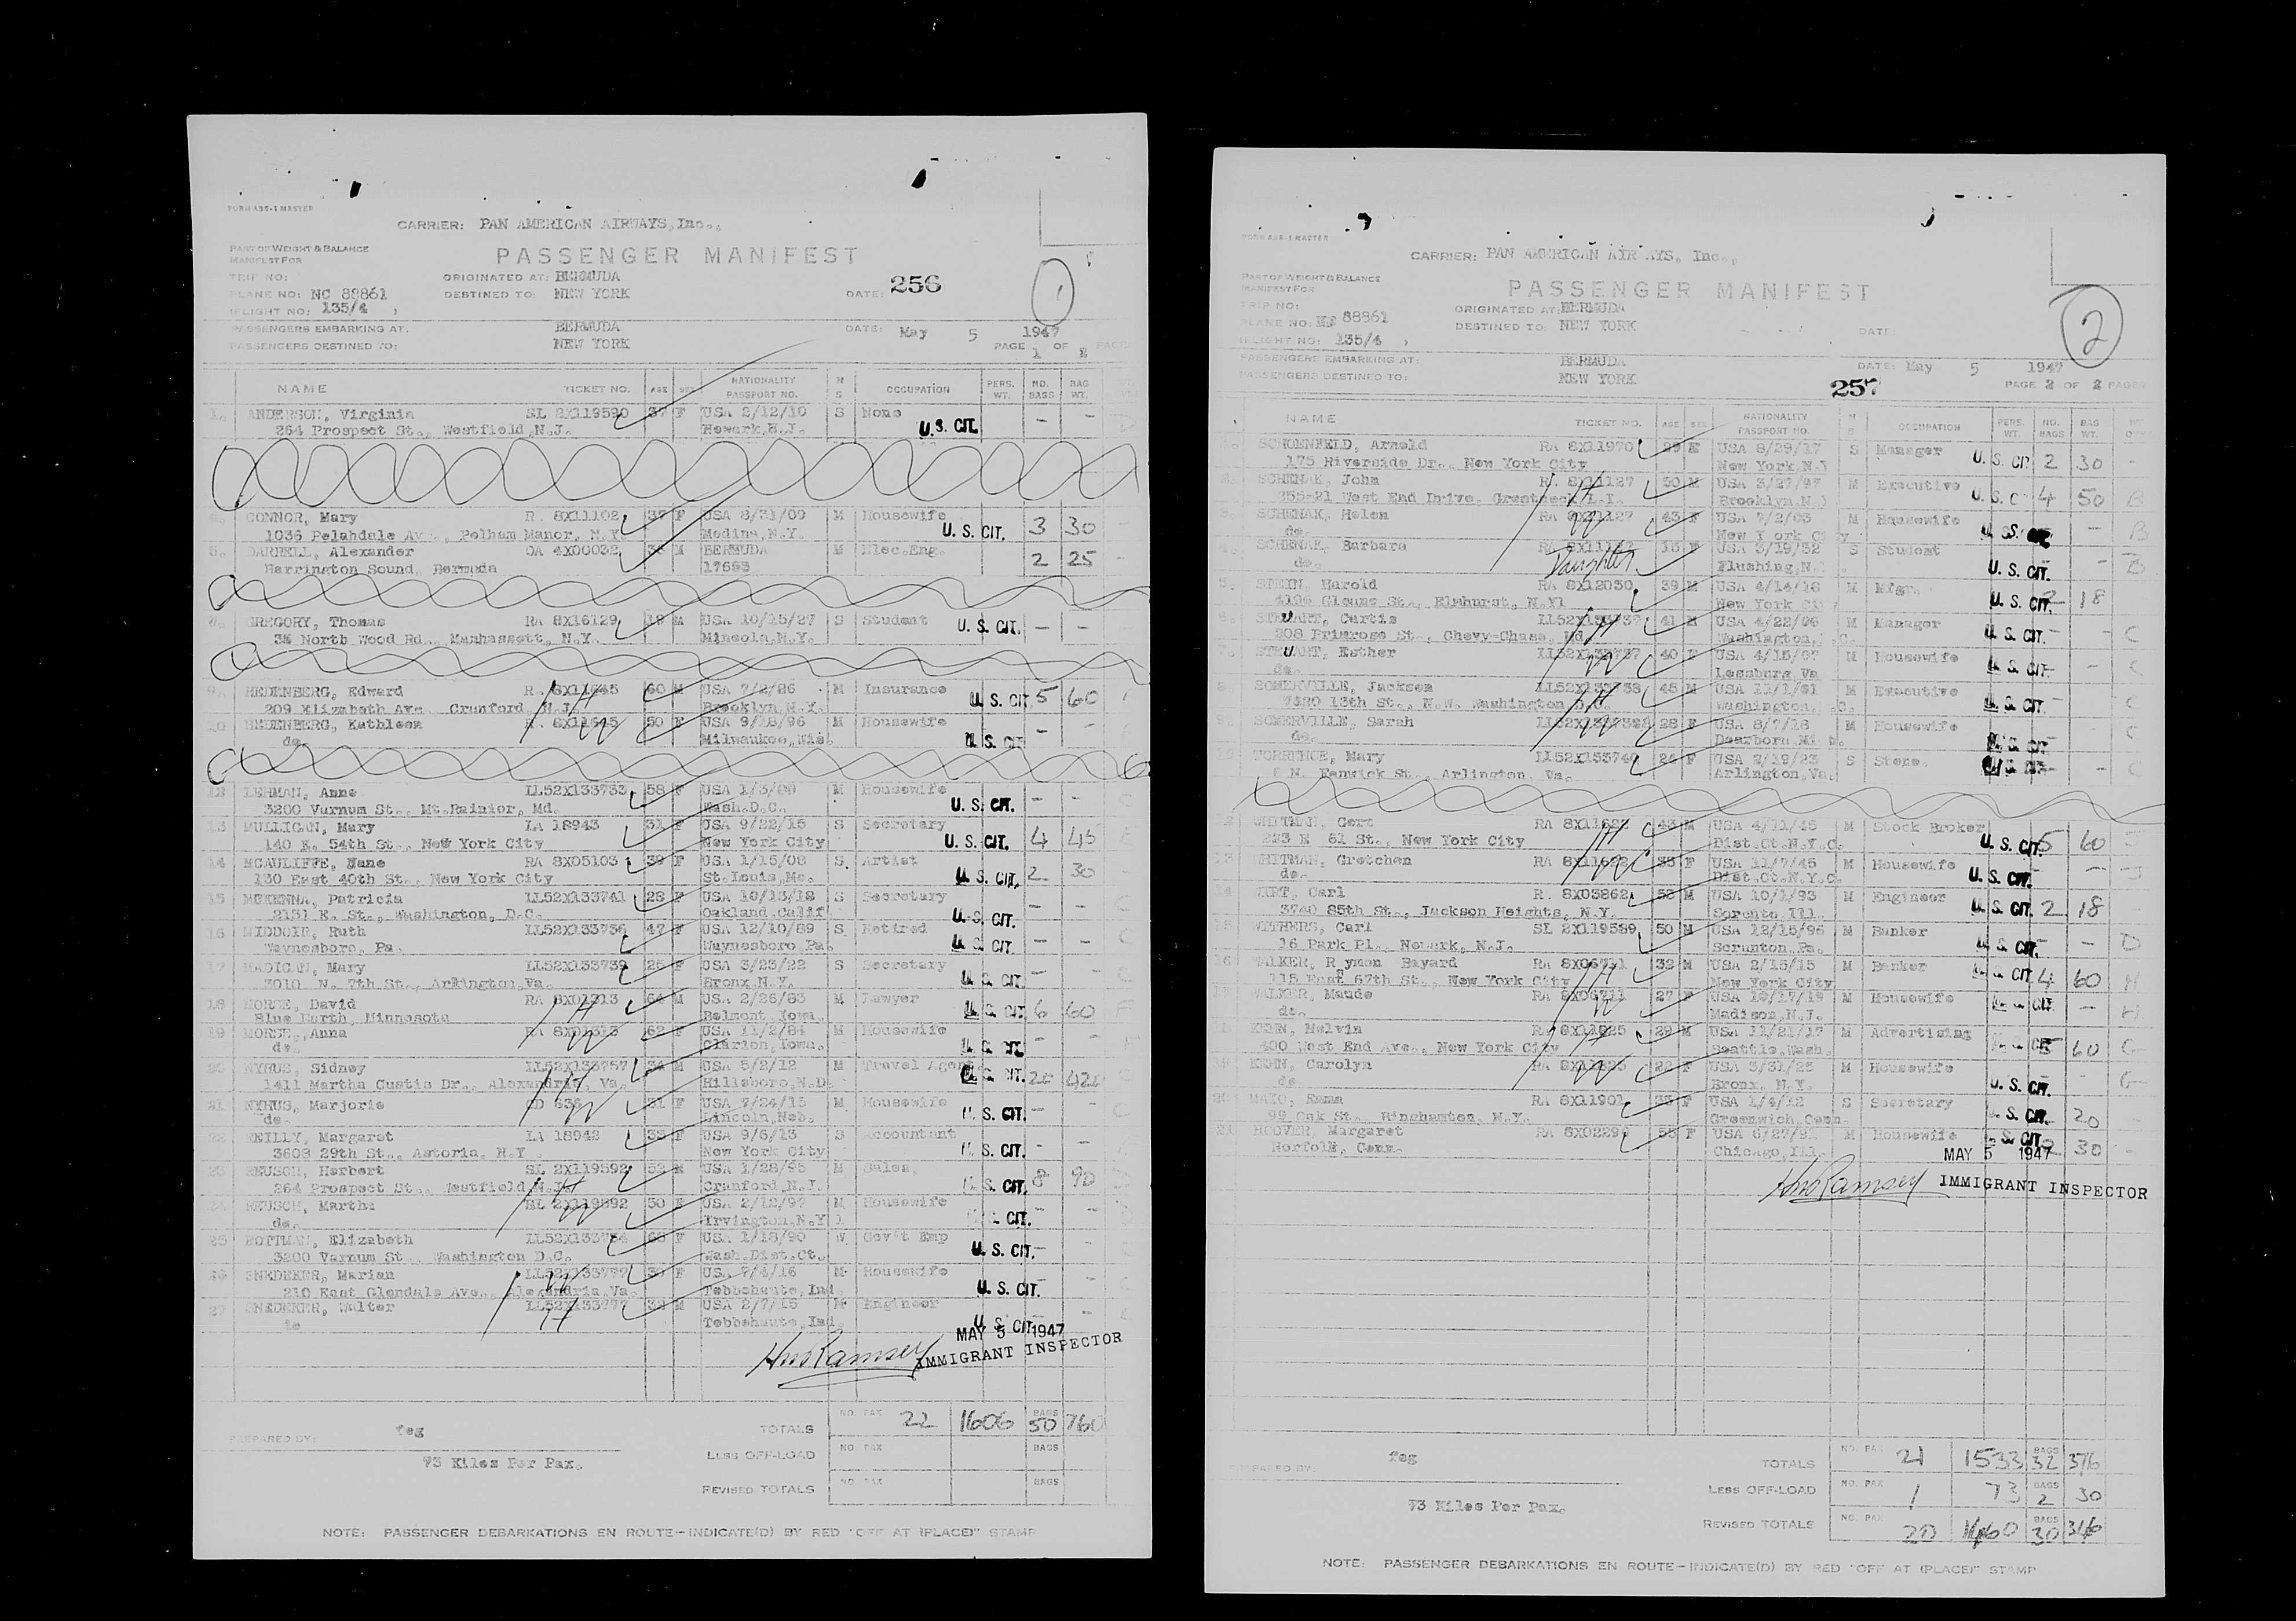 FORM ABS-1 MASTER
CARRIER: PAN AMERICAN AIRWAYS, Inc.,
PART OF WEIGHT & BALANCE
MANIFEST FOR
PASSENGER MANIFEST
TRIP NO:
ORIGINATED AT: BERMUDA
PLANE NO: NC 88861
DESTINED TO: NEW YORK
DATE: 256
1
FLIGHT NO: 135/4
PASSENGERS EMBARKING AT: BERMUDA
DATE: May 5 1947
PASSENGERS DESTINED TO: NEW YORK
PAGE 1 OF 2
NAME TICKET NO. AGE SEX NATIONALITY PASSPORT NO. M S OCCUPATION PERS. WT. NO. BAGS BAG WT.
1. ANDERSON, Virginia SL 2X119590 37 F USA 2/12/10 S None — —
264 Prospect St., Westfield, N.J. Newark, N.J. U.S. CIT.
CONNOR, Mary R. 8X11102 37 F USA 8/31/09 M Housewife 3 30
1036 Pelahdale Av., Pelham Manor, N.Y. Medina, N.Y. U.S. CIT.
5. DARRELL, Alexander OA 4X00032 M BERMUDA M Elec.Eng. 2 25
Harrington Sound, Bermuda 17663
GREGORY, Thomas RA 8X16129 19 M USA 10/15/27 S Student — —
34 North Wood Rd., Manhassett, N.Y. Mineola, N.Y. U.S. CIT.
9. HEDENBERG, Edward 60 M USA 7/2/86 M Insurance 5 60
209 Elizabeth Ave., Cranford, N.J. H Brooklyn, N.Y. U.S. CIT
10 HEDENBERG, Kathleen 50 F USA 9/18/96 M Housewife —
do. W Milwaukee, Wis. U.S. CIT
12 LEHMAN, Anne LL52X133733 58 F USA 1/3/89 M Housewife — —
3200 Varnum St., Mt.Rainier, Md. Wash.D.C. U.S. CIT.
13 MULLIGAN, Mary LA 18943 31 F USA 9/22/15 S Secretary 4 45
140 E. 54th St., New York City New York City U.S. CIT.
14 MCAULIFFE, Nane RA 8X05103 39 F USA 1/15/08 S Artist 2 30
130 East 40th St., New York City St.Louis, Mo. U.S. CIT.
15 MCKENNA, Patricia LL52X133741 28 F USA 10/13/18 S Secretary — —
2131 E. St., Washington, D.C. Oakland, Calif U.S. CIT.
16 Ruth LL52X133736 47 F USA 12/10/89 S Retired — —
Waynesboro, Pa. Waynesboro, Pa. U.S. CIT.
17 MADIGAN, Mary LL52X133739 25 F USA 3/23/22 S Secretary — —
3010 N. 7th St., Arlington, Va. Bronx, N.Y. U.S. CIT.
18 MORSE, David RA 8X01313 64 M USA 2/26/83 M Lawyer 6 60
Blue Earth, Minnesota H Belmont, Iowa. U.S. CIT
19 MORSE, Anna RA 8X01313 62 F USA 11/2/84 M Housewife — —
do. W Clarion, Iowa. U.S. CIT
20 NYHUS, Sidney LL52X133757 34 M USA 5/2/12 M Travel Agent 20 420
1411 Martha Custis Dr., Alexandria, Va. H Hillsboro, N.D. U.S. CIT.
21 NYHUS, Marjorie 31 F USA 7/24/15 M Housewife — —
do. W Lincoln, Neb. U.S. CIT.
22 REILLY, Margaret LA 18942 33 F USA 9/6/13 S Accountant — —
3608 29th St., Astoria, N.Y New York City U.S. CIT.
23 REUSCH, Herbert SL 2X119592 52 M USA 1/28/95 M Sales. 8 90
264 Prospect St., Westfield, N.J. H Cranford, N.J. U.S. CIT.
REUSCH, Martha SL 2X119592 50 F USA 2/12/97 M Housewife — —
do. W Irvington, N.Y. CIT.
25 ROTTMAN, Elizabeth LL52X133734 F USA 1/18/90 W Gov't Emp — —
3200 Varnum St., Washington D.C. Wash.Dist.Ct. U.S. CIT.
26 SNEDEKER, Marian LL52X133777 30 F USA 7/4/16 M Housewife — —
210 East Glendale Ave., Alexandria, Va. W Tebbehaute, Ind. U.S. CIT.
27 SNEDEKER, Walter LL52X133777 32 M USA 2/7/15 M Engineer — —
do H Tebbehaute, Ind. U.S. CIT.
MAY 5 1947
IMMIGRANT INSPECTOR
NO. PAX 22 1606 BAGS 50 760
PREPARED BY: feg
TOTALS
73 Kilos Per Pax.
LESS OFF-LOAD NO. PAX BAGS
REVISED TOTALS NO. PAX BAGS
NOTE: PASSENGER DEBARKATIONS EN ROUTE—INDICATE(D) BY RED "OFF AT (PLACE)" STAMP
FORM ABS-1 MASTER
CARRIER: PAN AMERICAN AIRWAYS, Inc.,
PART OF WEIGHT & BALANCE
MANIFEST FOR
PASSENGER MANIFEST
TRIP NO:
ORIGINATED AT: BERMUDA
PLANE NO: NC 88861
DESTINED TO: NEW YORK
DATE:
2
FLIGHT NO: 135/4
PASSENGERS EMBARKING AT: BERMUDA
DATE: May 5 1947
PASSENGERS DESTINED TO: NEW YORK
257
PAGE 2 OF 2 PAGES
NAME TICKET NO. AGE SEX NATIONALITY PASSPORT NO. M S OCCUPATION PERS. WT. NO. BAGS BAG WT.
SCHOENFELD, Arnold RA 8X11970 29 M USA 8/29/17 S Manager 2 30
175 Riverside Dr., New York City New York, N.Y U.S. CIT
2. SCHENAK, John 8X11127 50 M USA 3/27/97 M Executive 4 50 B
255-21 West End Drive, Greatneck, L.I. H Brooklyn, N.Y U.S. C
3. SCHENAK, Helen RA 8X11127 43 F USA 7/2/03 M Housewife — B
do. W New York City U.S.
4. SCHENAK, Barbara 15 F USA 3/19/32 S Student — B
do. Daughter Flushing, N. U.S. CIT.
5. STEIN, Harold RA 8X12030 39 M USA 4/14/18 M Mfgr. 2 18
4196 Gleane St., Elmhurst, N.Y New York City U.S. CIT.
6. STEUART, Curtis 41 M USA 4/22/06 M Manager — — C
208 Primrose St., Chevy-Chase, Md. H Washington, D.C. U.S. CIT.
7. STEUART, Esther 40 F USA 4/15/07 M Housewife — C
do. W Leesburg, Va U.S. CIT.
8. SOMERVILLE, Jackson 45 M USA 11/1/01 M Executive — C
7320 13th St., N.W. Washington D.C. H Washington, D.C. U.S. CIT.
9. SOMERVILLE, Sarah 28 F USA 8/7/18 M Housewife — C
do. W Dearborn, Mich. U.S. CIT
10 TORRENCE, Mary LL52X133740 24 F USA 2/19/23 S Steno. — C
N. Fenwick St., Arlington, Va. Arlington, Va. U.S. CIT
12 WHITMAN, Gert RA 8X11622 43 M USA 4/11/45 M Stock Broker 5 60 J
223 E 61 St., New York City H Dist.Ct.N.Y.C. U.S. CIT.
13 WHITMAN, Gretchen RA 8X11622 35 F USA 11/7/45 M Housewife — J
do. Dist.Ct.N.Y.C. U.S. CIT.
14 WIRT, Carl R. 8X03862 53 M USA 10/1/93 M Engineer 2 18
3740 85th St., Jackson Heights, N.Y. Sorento, Ill. U.S. CIT.
15 WITHERS, Carl SL 2X119589 50 M USA 12/15/96 M Banker — D
16 Park Pl., Newark, N.J. Scranton, Pa. U.S. CIT.
16 WALKER, Raymon Bayard RA 8X06711 32 M USA 2/15/15 M Banker 4 60 H
115 East 67th St., New York City H New York City U.S. CIT
WALKER, Maude RA 8X06711 27 F USA 10/17/19 M Housewife — H
do. W Madison, N.J. CIT
KUHN, Melvin RA 8X11925 29 M USA 11/21/17 M Advertising 5 60 G
400 West End Ave., New York City H Seattle, Wash. CIT
KUHN, Carolyn RA 8X11925 22 F USA 3/31/25 M Housewife — G
do. W Bronx, N.Y. U.S. CIT.
20 MAYO, Emma RA 8X11901 35 F USA 1/4/12 S Secretary 20
99 Oak St., Binghamton, N.Y. Greenwich, Conn. U.S. CIT.
21 HOOVER, Margaret RA 8X02296 55 F USA 6/27/91 M Housewife 2 30
Norfolk, Conn. Chicago, Ill. U.S. CIT.
MAY 5 1947
IMMIGRANT INSPECTOR
PREPARED BY: feg
TOTALS NO. PAX 21 1533 BAGS 32 376
LESS OFF-LOAD NO. PAX 1 73 BAGS 2 30
73 Kilos Per Pax.
REVISED TOTALS NO. PAX 20 1460 BAGS 30 346
NOTE: PASSENGER DEBARKATIONS EN ROUTE—INDICATE(D) BY RED "OFF AT (PLACE)" STAMP